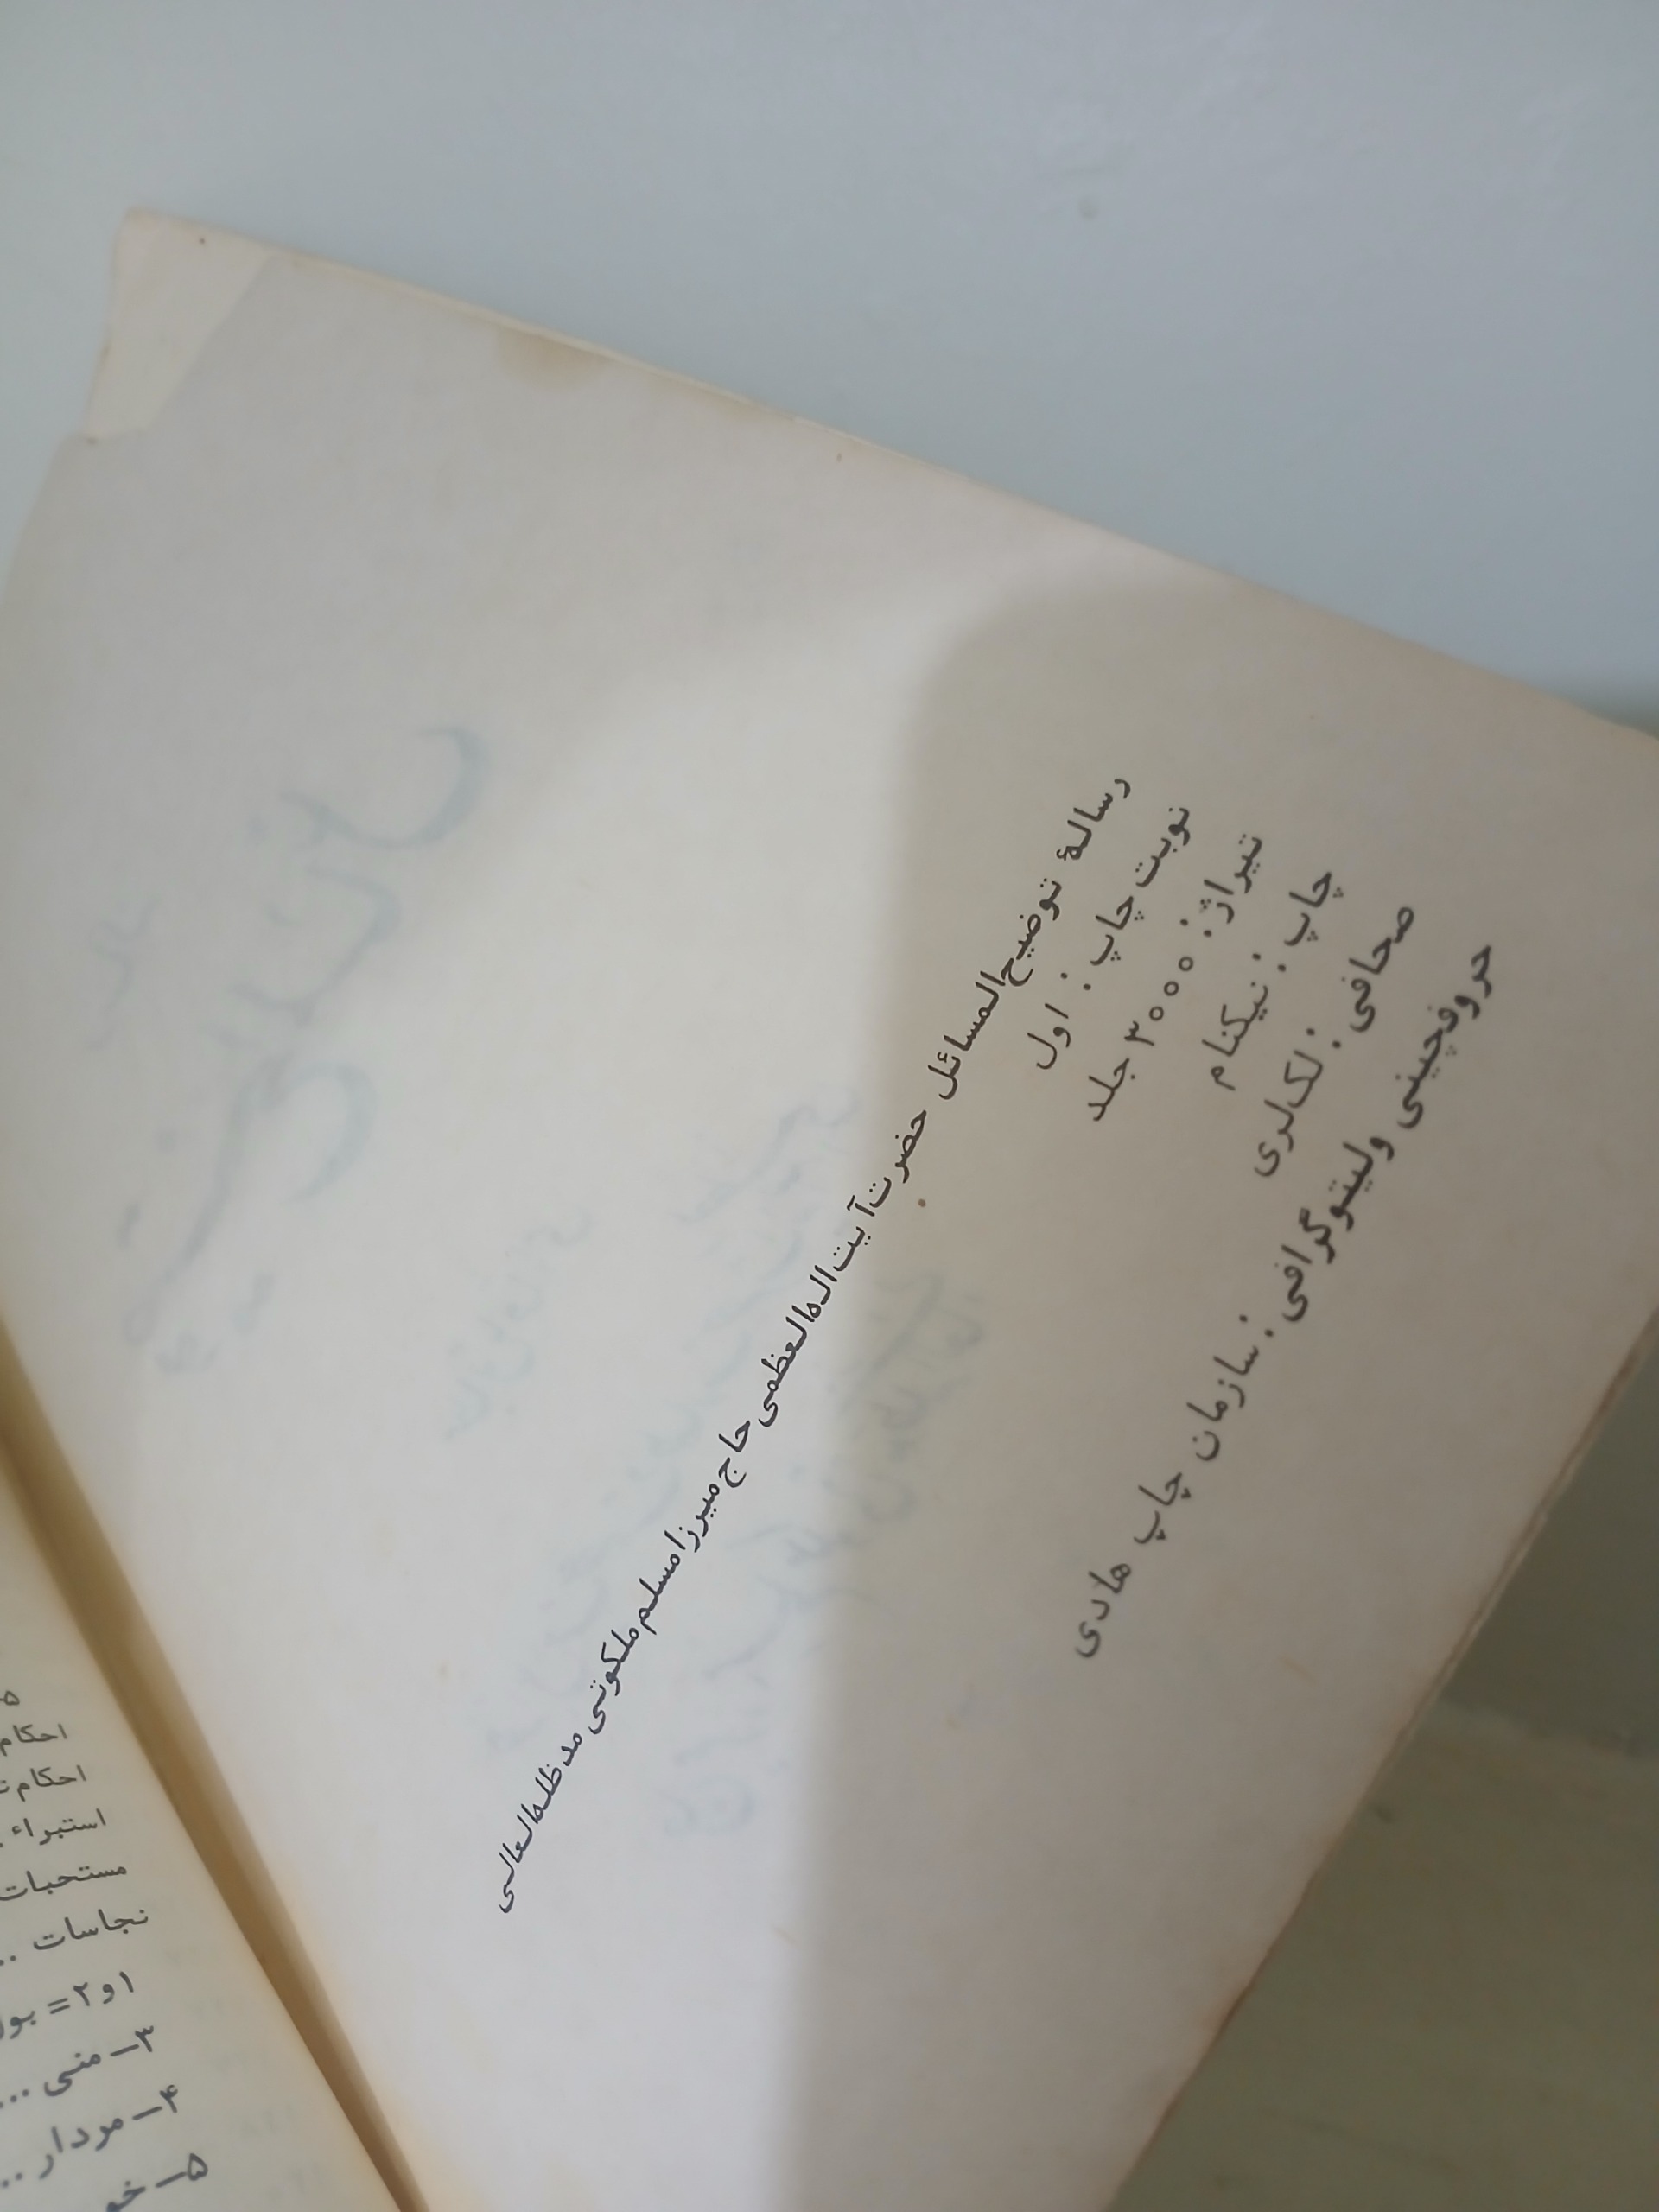 رسالهٔ توضیح‌المسائل حضرت آیت‌اله‌العظمی حاج میرزا مسلم ملکوتی مدظله‌العالی
نوبت چاپ : اول
تیراژ : ۳۰۰۰ جلد
چاپ : نیکنام
صحافی : لک‌لری
حروفچینی ولیتوگرافی : سازمان چاپ هادی
احکام
احکام
استبراء
مستحبات
نجاسات ..
۱و۲= بول
۳ــ منی ...
۴ــ مردار ..
۵ــ